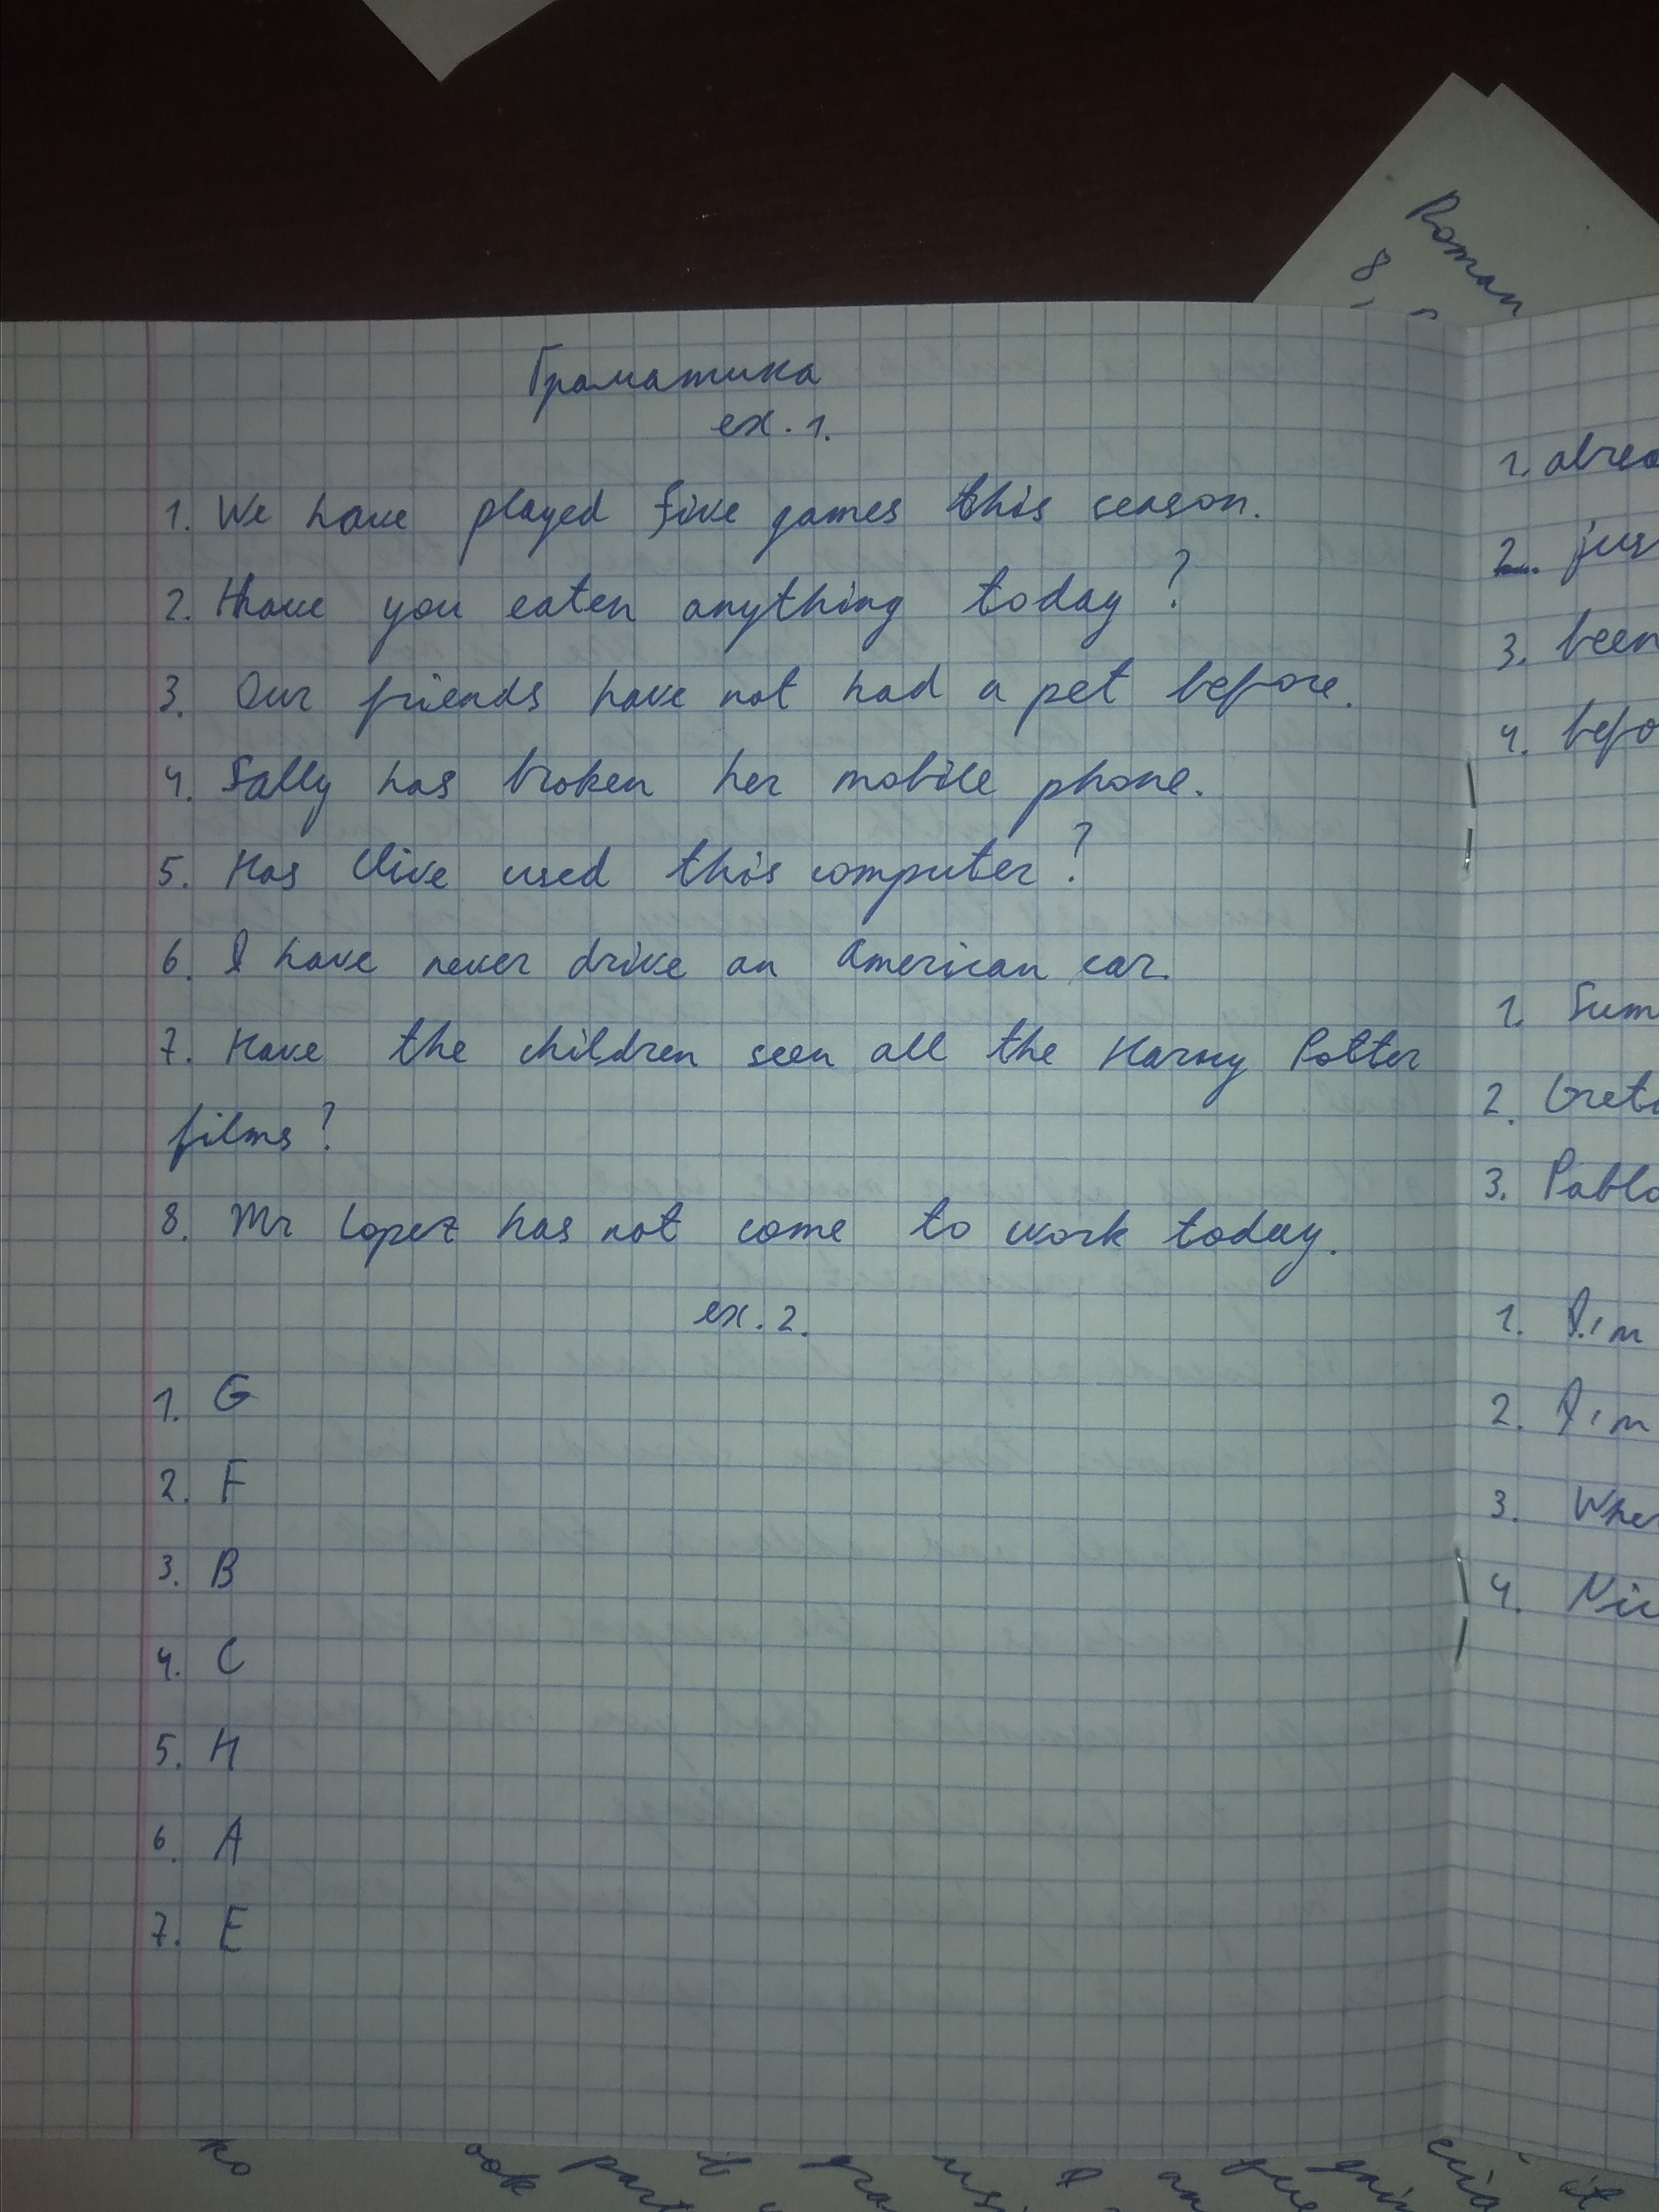 Roman
8
Граматика
ex. 1.
1. We have played five games this season.
2. Have you eaten anything today?
3. Our friends have not had a pet before.
4. Sally has broken her mobile phone.
5. Has Clive used this computer?
6. I have never drive an American car.
7. Have the children seen all the Harry Potter
films?
8. Mr Lopez has not come to work today.
ex. 2.
1. G
2. F
3. B
4. C
5. H
6. A
7. E
1. alrea
2. jus
3. been
4. befo
1. Sum
2. Greta
3. Pablo
1. I'm
2. I'm
3. Wher
4. Nic
ko ook part it